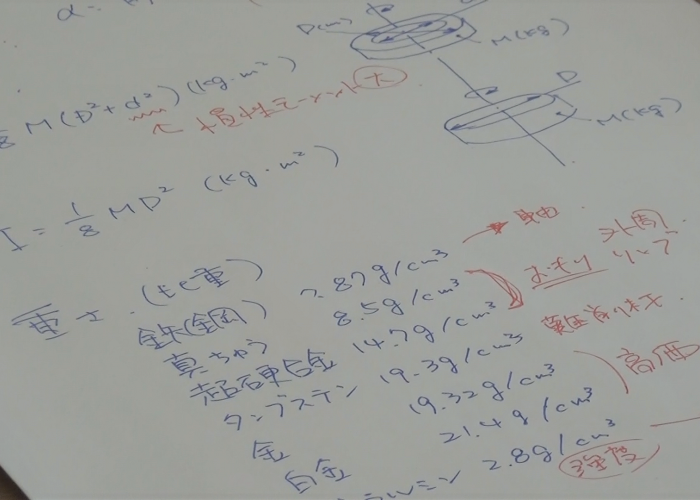 α =
D(m)
M(kg)
M(D²+d²)(kg·m²)
慣性モーメント大
D
M(kg)
I = 1/8 MD² (kg·m²)
重さ (比重)
鉄(鋼) 7.87g/cm³
真ちゅう 8.5g/cm³
超硬合金 14.7g/cm³
タングステン 19.3g/cm³
金 19.32g/cm³
白金 21.4g/cm³
ラルミン 2.8g/cm³
おもり
外周
リング
難削材
高価
強度